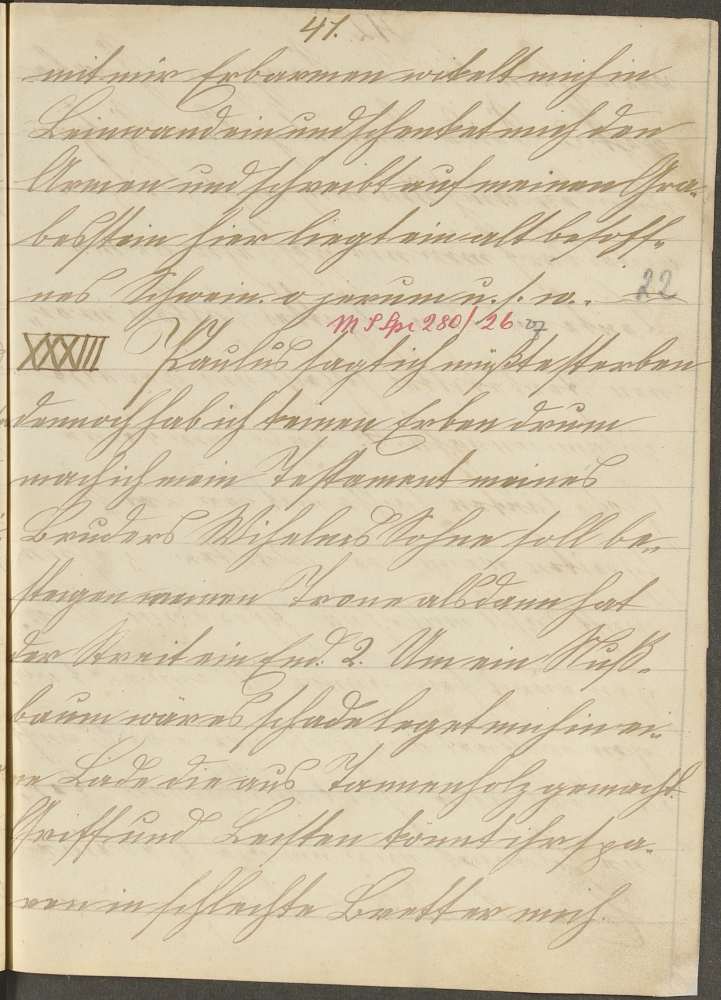 41.
mit mir Erbarmen wikelt mich in
Leinwand ein und schenket mich den
Armen und schreibt auf meinen Gra-
besstein hier liegt ein alt besoff-
nes Schwein. o jerum u. s. w. 22
M S Spr 280/26
XXXIII Paulus sagt ich müßte sterben
dennoch hab ich keinen Erben drum
mach ich mein Testament meines
Bruders Wihelms Sohne soll be-
steigen meinen Trone alsdann hat
der Streit ein End. 2. Um ein Nuß-
baum wär es schade leget mich in ei-
ne Lade die aus Tannenholz gemacht.
Griff und Leisten könnt ihr spa-
ren in schlechte Bretter mich